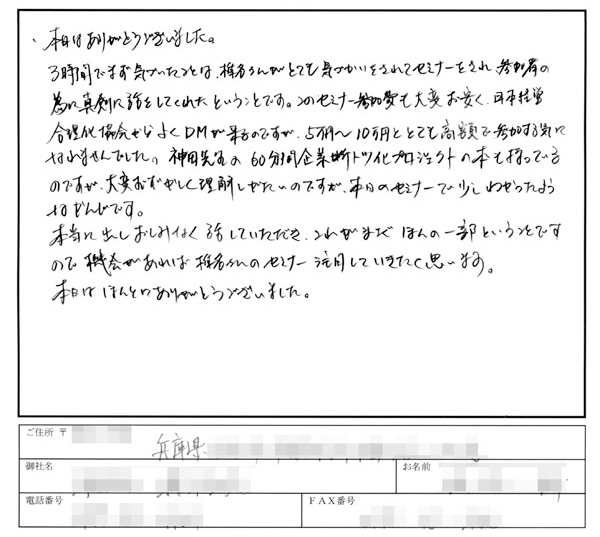 ・本日はありがとうございました。
3時間でまず気づいたことは、椎名さんがとても気づかいをされてセミナーをされ、参加者の
為に真剣に話をしてくれたということです。このセミナー参加費も大変お安く、日本経営
合理化協会からよくDMが来るのですが、5万円〜10万円ととても高額で参加する気に
なれませんでした。神田先生の60分間企業ダントツ化プロジェクトの本も持っている
のですが、大変むずかしく理解しがたいのですが、本日のセミナーで少しわかったよう
なかんじです。
本当に出しおしみなく話していただき、これがまだほんの一部ということです
ので機会があれば椎名さんのセミナー注目していきたく思います。
本日はほんとにありがとうございました。
ご住所 〒
兵庫県
御社名
お名前
電話番号
FAX番号